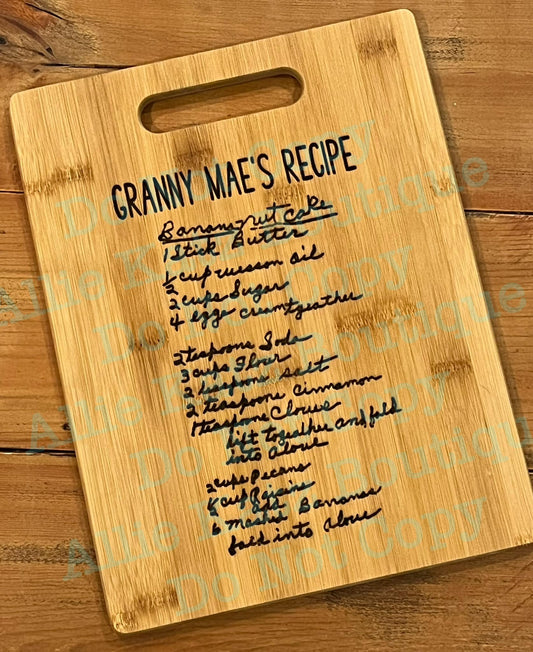 GRANNY MAE'S RECIPE
Banana nut cake
1 Stick Butter
1/2 cup wesson oil
2 cups Sugar
4 eggs cream together
2 teaspoons Soda
3 cups Flour
2 teaspoons salt
2 teaspoons cinnamon
1 teaspoon Cloves
sift together and fold
into above
2 cups Pecans
cup Raisins
add
6 mashed Bananas
fold into above
Do Not Copy
Allie Boutique
Do Not Copy
Allie Boutique
Do Not Copy